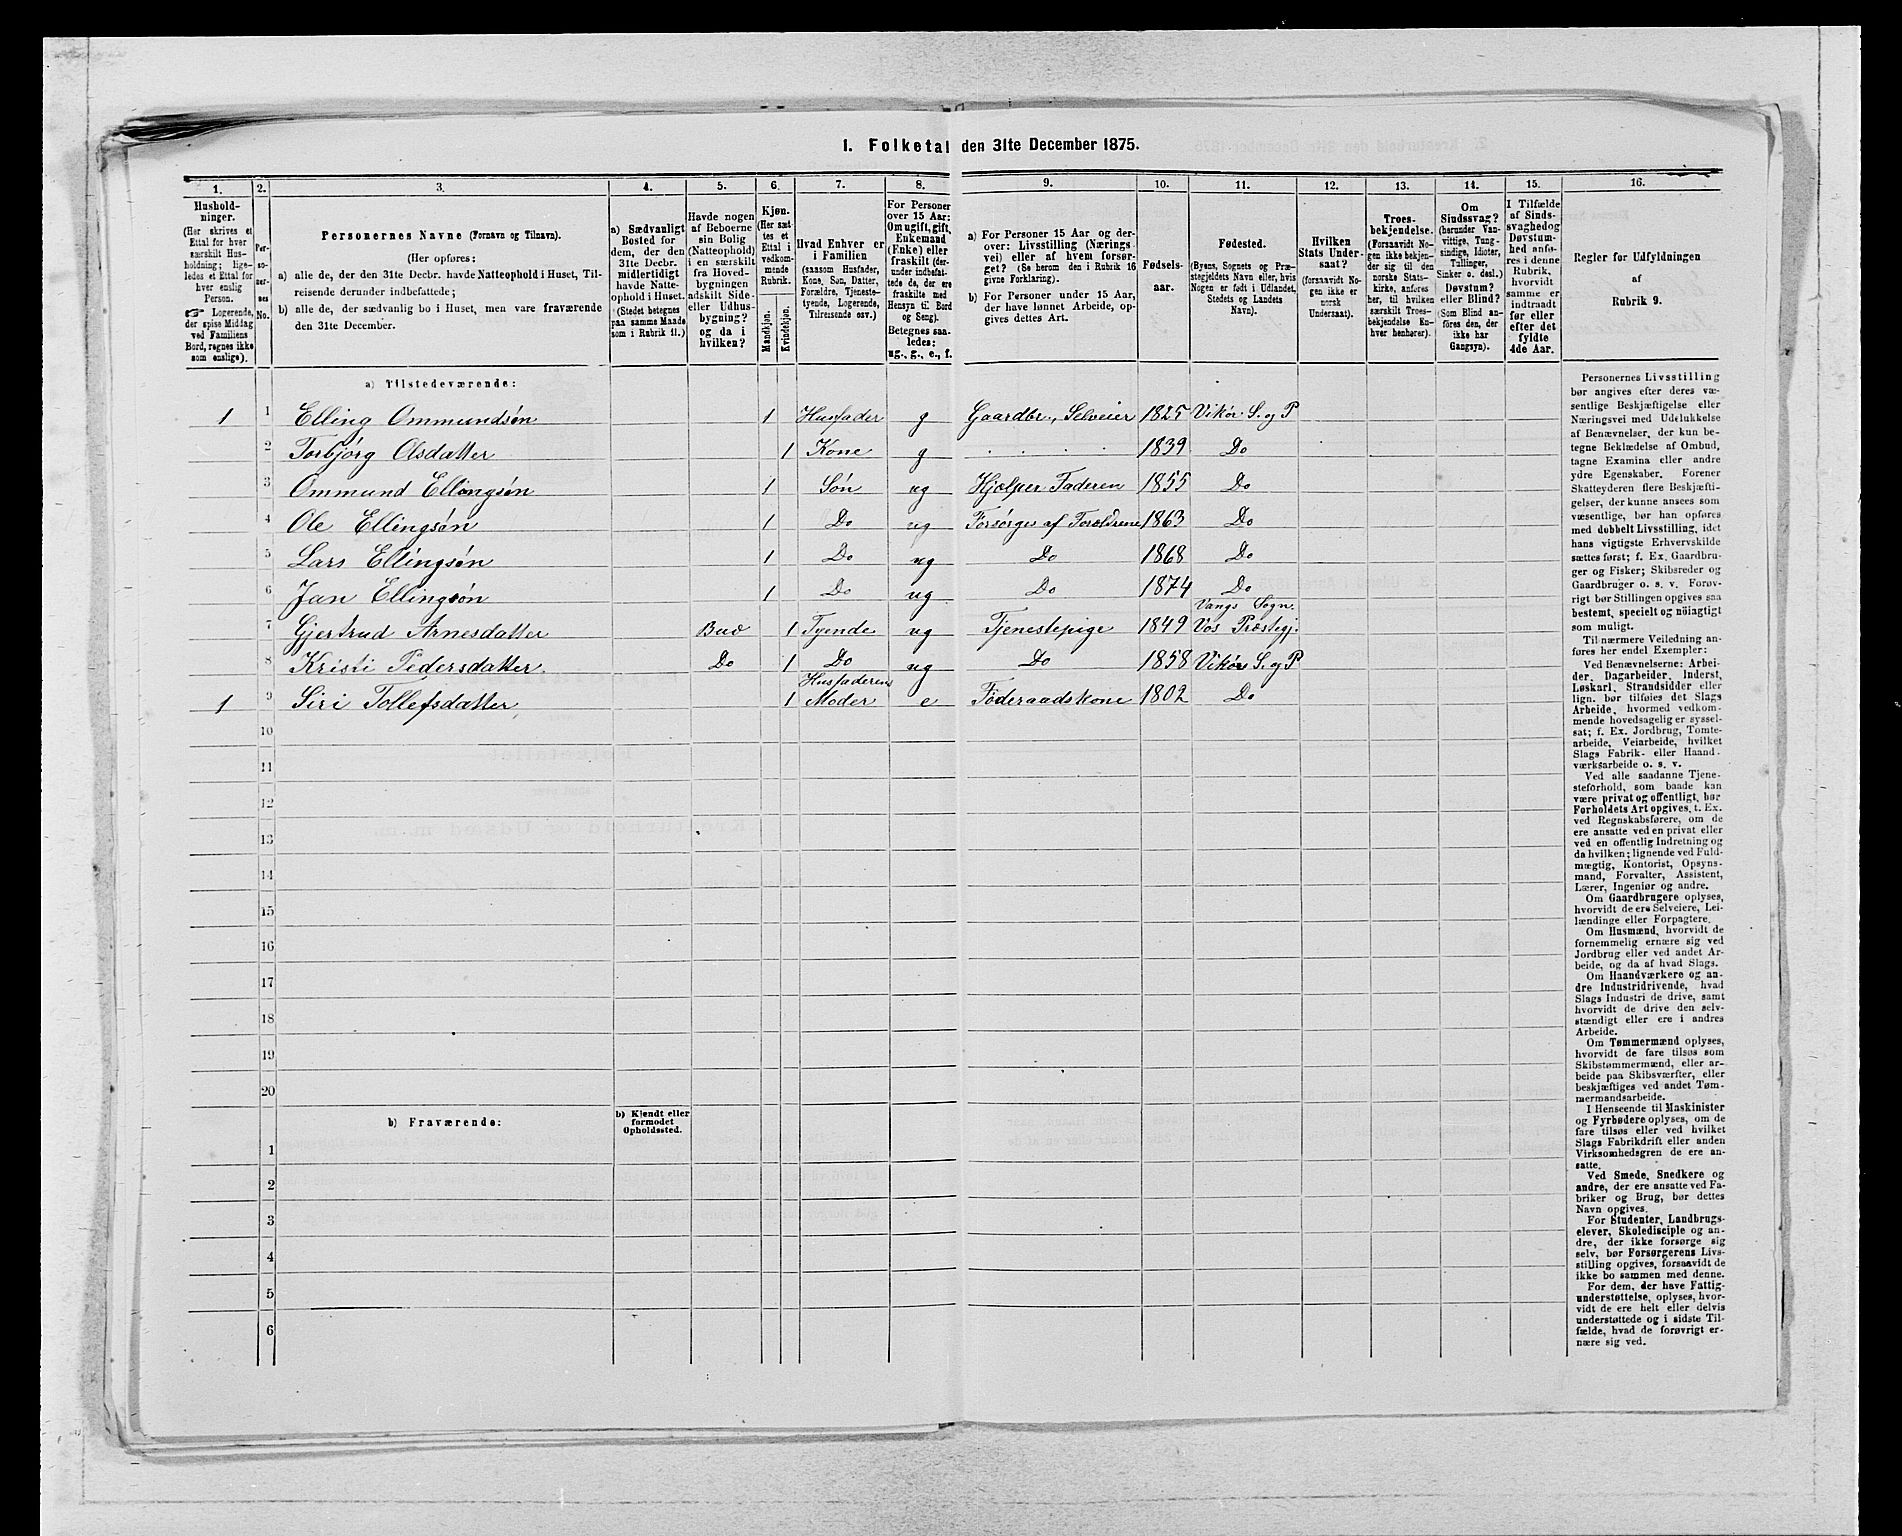 1. Folketal den 31te December 1875.
1. 2. 3. 4. 5. 6. 7. 8. 9. 10. 11. 12. 13. 14. 15. 16.
Hushold-
ninger.
(Her skrives et
Ettal for hver
særskilt Hus-
holdning; lige-
ledes et Ettal for
hver enslig
Person.
☞ Logerende,
der spise Middag
ved Familiens
Bord, regnes ikke
som enslige).
Per-
so-
ner-
nes
No.
Personernes Navne (Fornavn og Tilnavn).
(Her opføres:
a) alle de, der den 31te Decbr. havde Natteophold i Huset, Til-
reisende derunder indbefattede;
b) alle de, der sædvanlig bo i Huset, men vare fraværende
den 31te December.
a) Sædvanligt
Bosted for
dem, der den
31te Decbr.
midlertidigt
havde Natte-
ophold i Huset.
(Stedet betegnes
paa samme Maade
som i Rubrik 11.)
Havde nogen
af Beboerne
sin Bolig
(Natteophold)
i en særskilt
fra Hoved-
bygningen
adskilt Side-
eller Udhus-
bygning?
og da i
hvilken?
Kjøn.
(Her sæt-
tes et
Ettal i
vedkom-
mende
Rubrik.
Mandkjøn.
Kvindekjøn.
Hvad Enhver er
i Familien
(saasom Husfader,
Kone, Søn, Datter,
Forældre, Tjeneste-
tyende, Logerende,
Tilreisende osv.)
For Personer
over 15 Aar:
Om ugift, gift,
Enkemand
(Enke) eller
fraskilt (der-
under indbefat-
tede de, der ere
fraskilte med
Hensyn til Bord
og Seng).
Betegnes saa-
ledes:
ug., g., e., f.
a) For Personer 15 Aar og der-
over: Livsstilling (Nærings
vei) eller af hvem forsør-
get? (Se herom den i Rubrik 16
givne Forklaring).
b) For Personer under 15 Aar,
der have lønnet Arbeide, op-
gives dettes Art.
Fødsels-
aar.
Fødested.
(Byens, Sognets og Præ-
stegjeldets Navn eller, hvis
Nogen er født i Udlandet,
Stedets og Landets
Navn).
Hvilken
Stats Under-
saat?
(forsaavidt No-
gen ikke er
norsk
Undersaat).
Troes-
bekjendelse.
(Forsaavidt No-
gen ikke bekjen-
der sig til den
norske Stats-
kirke, anføres
her, til hvilken
særskilt Troes-
bekjendelse En-
hver henhører).
Om
Sindssvag?
(herunder Van-
vittige, Tung-
sindige, Idioter,
Tullinger,
Sinker o. desl.)
Døvstum?
eller Blind?
(Som Blind an-
føres den, der
ikke har
Gangsyn).
I Tilfælde
af Sinds-
svaghed og
Døvstum-
hed anfø-
res i denne
Rubrik,
hvorvidt
samme er
indtraadt
før eller
efter det
fyldte
4de Aar.
Regler for Udfyldningen
af
Rubrik 9.
a) Tilstedeværende:
1 1 Elling Ommundsøn 1 Husfader g Gaardbr., Selveier 1825 Vikør S. og P
2 Torbjørg Olsdatter 1 Kone g . . . . 1839 Do
3 Ommund Ellingsøn 1 Søn ug Hjælper Faderen 1855 Do
4 Ole Ellingsøn 1 Do ug Forsørges af Forældrene 1863 Do
5 Lars Ellingsøn 1 Do ug Do 1868 Do
6 Jan Ellingsøn 1 Do ug Do 1874 Do
7 Gjertrud Arnesdatter Bud 1 Tyende ug Tjenestepige 1849 Vangs Sogn. Vos Præstegj.
8 Kristi Pedersdatter Do 1 Do ug Do 1858 Vikør S. og P
1 9 Siri Tollefsdatter 1 Husfaderens Moder e Føderaadskone 1802 Do
10
11
12
13
14
15
16
17
18
19
20
b) Fraværende:
b) Kjendt eller
formodet
Opholdssted.
1
2
3
4
5
6
Personernes Livsstilling
bør angives efter deres væ-
sentlige Beskjæftigelse eller
Næringsvei med Udelukkelse
af Benævnelser, der kun be-
tegne Beklædelse af Ombud,
tagne Examina eller andre
ydre Egenskaber. Forener
Skatteyderen flere Beskjæfti-
gelser, der kunne ansees som
væsentlige, bør han opføres
med dobbelt Livsstilling, idet
hans vigtigste Erhvervskilde
sættes først; f. Ex. Gaardbru-
ger og Fisker; Skibsreder og
Gaardbruger o. s. v. Forøv-
rigt bør Stillingen opgives saa
bestemt, specielt og nöiagtigt
som muligt.
Til nærmere Veiledning an-
føres her endel Exempler:
Ved Benævnelserne: Arbei-
der, Dagarbeider, Inderst,
Løskarl, Strandsidder eller
lign. bør tilføies det Slags
Arbeide, hvormed vedkom-
mende hovedsagelig er syssel-
sat; f. Ex. Jordbrug, Tomte-
arbeide, Veiarbeide, hvilket
Slags Fabrik- eller Haand-
værksarbeide o. s. v.
Ved alle saadanne Tjene-
steforhold, som baade kan
være privat og offentligt, bør
Forholdets Art opgives, t. Ex.
ved Regnskabsførere, om de
ere ansatte ved en privat eller
ved en offentlig Indretning og
da hvilken; lignende ved Fuld-
mægtig, Kontorist, Opsyns-
mand, Forvalter, Assistent,
Lærer, Ingeniør og andre.
Om Gaardbrugere oplyses,
hvorvidt de ere Selveiere, Lei-
lændinge eller Forpagtere.
Om Husmænd, hvorvidt de
fornemmelig ernære sig ved
Jordbrug eller ved andet Ar-
beide, og da af hvad Slags.
Om Haandværkere og an-
dre Industridrivende, hvad
Slags Industri de drive, samt
hvorvidt de drive den selv-
stændigt eller ere i andres
Arbeide.
Om Tømmermænd oplyses,
hvorvidt de fare tilsøs som
Skibstømmermænd, eller ar-
beide paa Skibsværfter, eller
beskjæftiges ved andet Tøm-
mermandsarbeide.
I Henseende til Maskinister
og Fyrbødere oplyses, om de
fare tilsøs eller ved hvilket
Slags Fabrikdrift eller anden
Virksomhedsgren de ere an-
satte.
Ved Smede, Snedkere og
andre, der ere ansatte ved Fa-
briker og Brug, bør dettes
Navn opgives.
For Studenter, Landbrugs-
elever, Skoledisciple og an-
dre, der ikke forsørge sig
selv, bør Forsørgerens Livs-
stilling opgives, forsaavidt de
ikke bo sammen med denne.
For dem, der have Fattig-
understøttelse, oplyses, hvor-
vidt de ere helt eller delvis
understøttede og i sidste Til-
fælde, hvad de forøvrigt er-
nære sig ved.